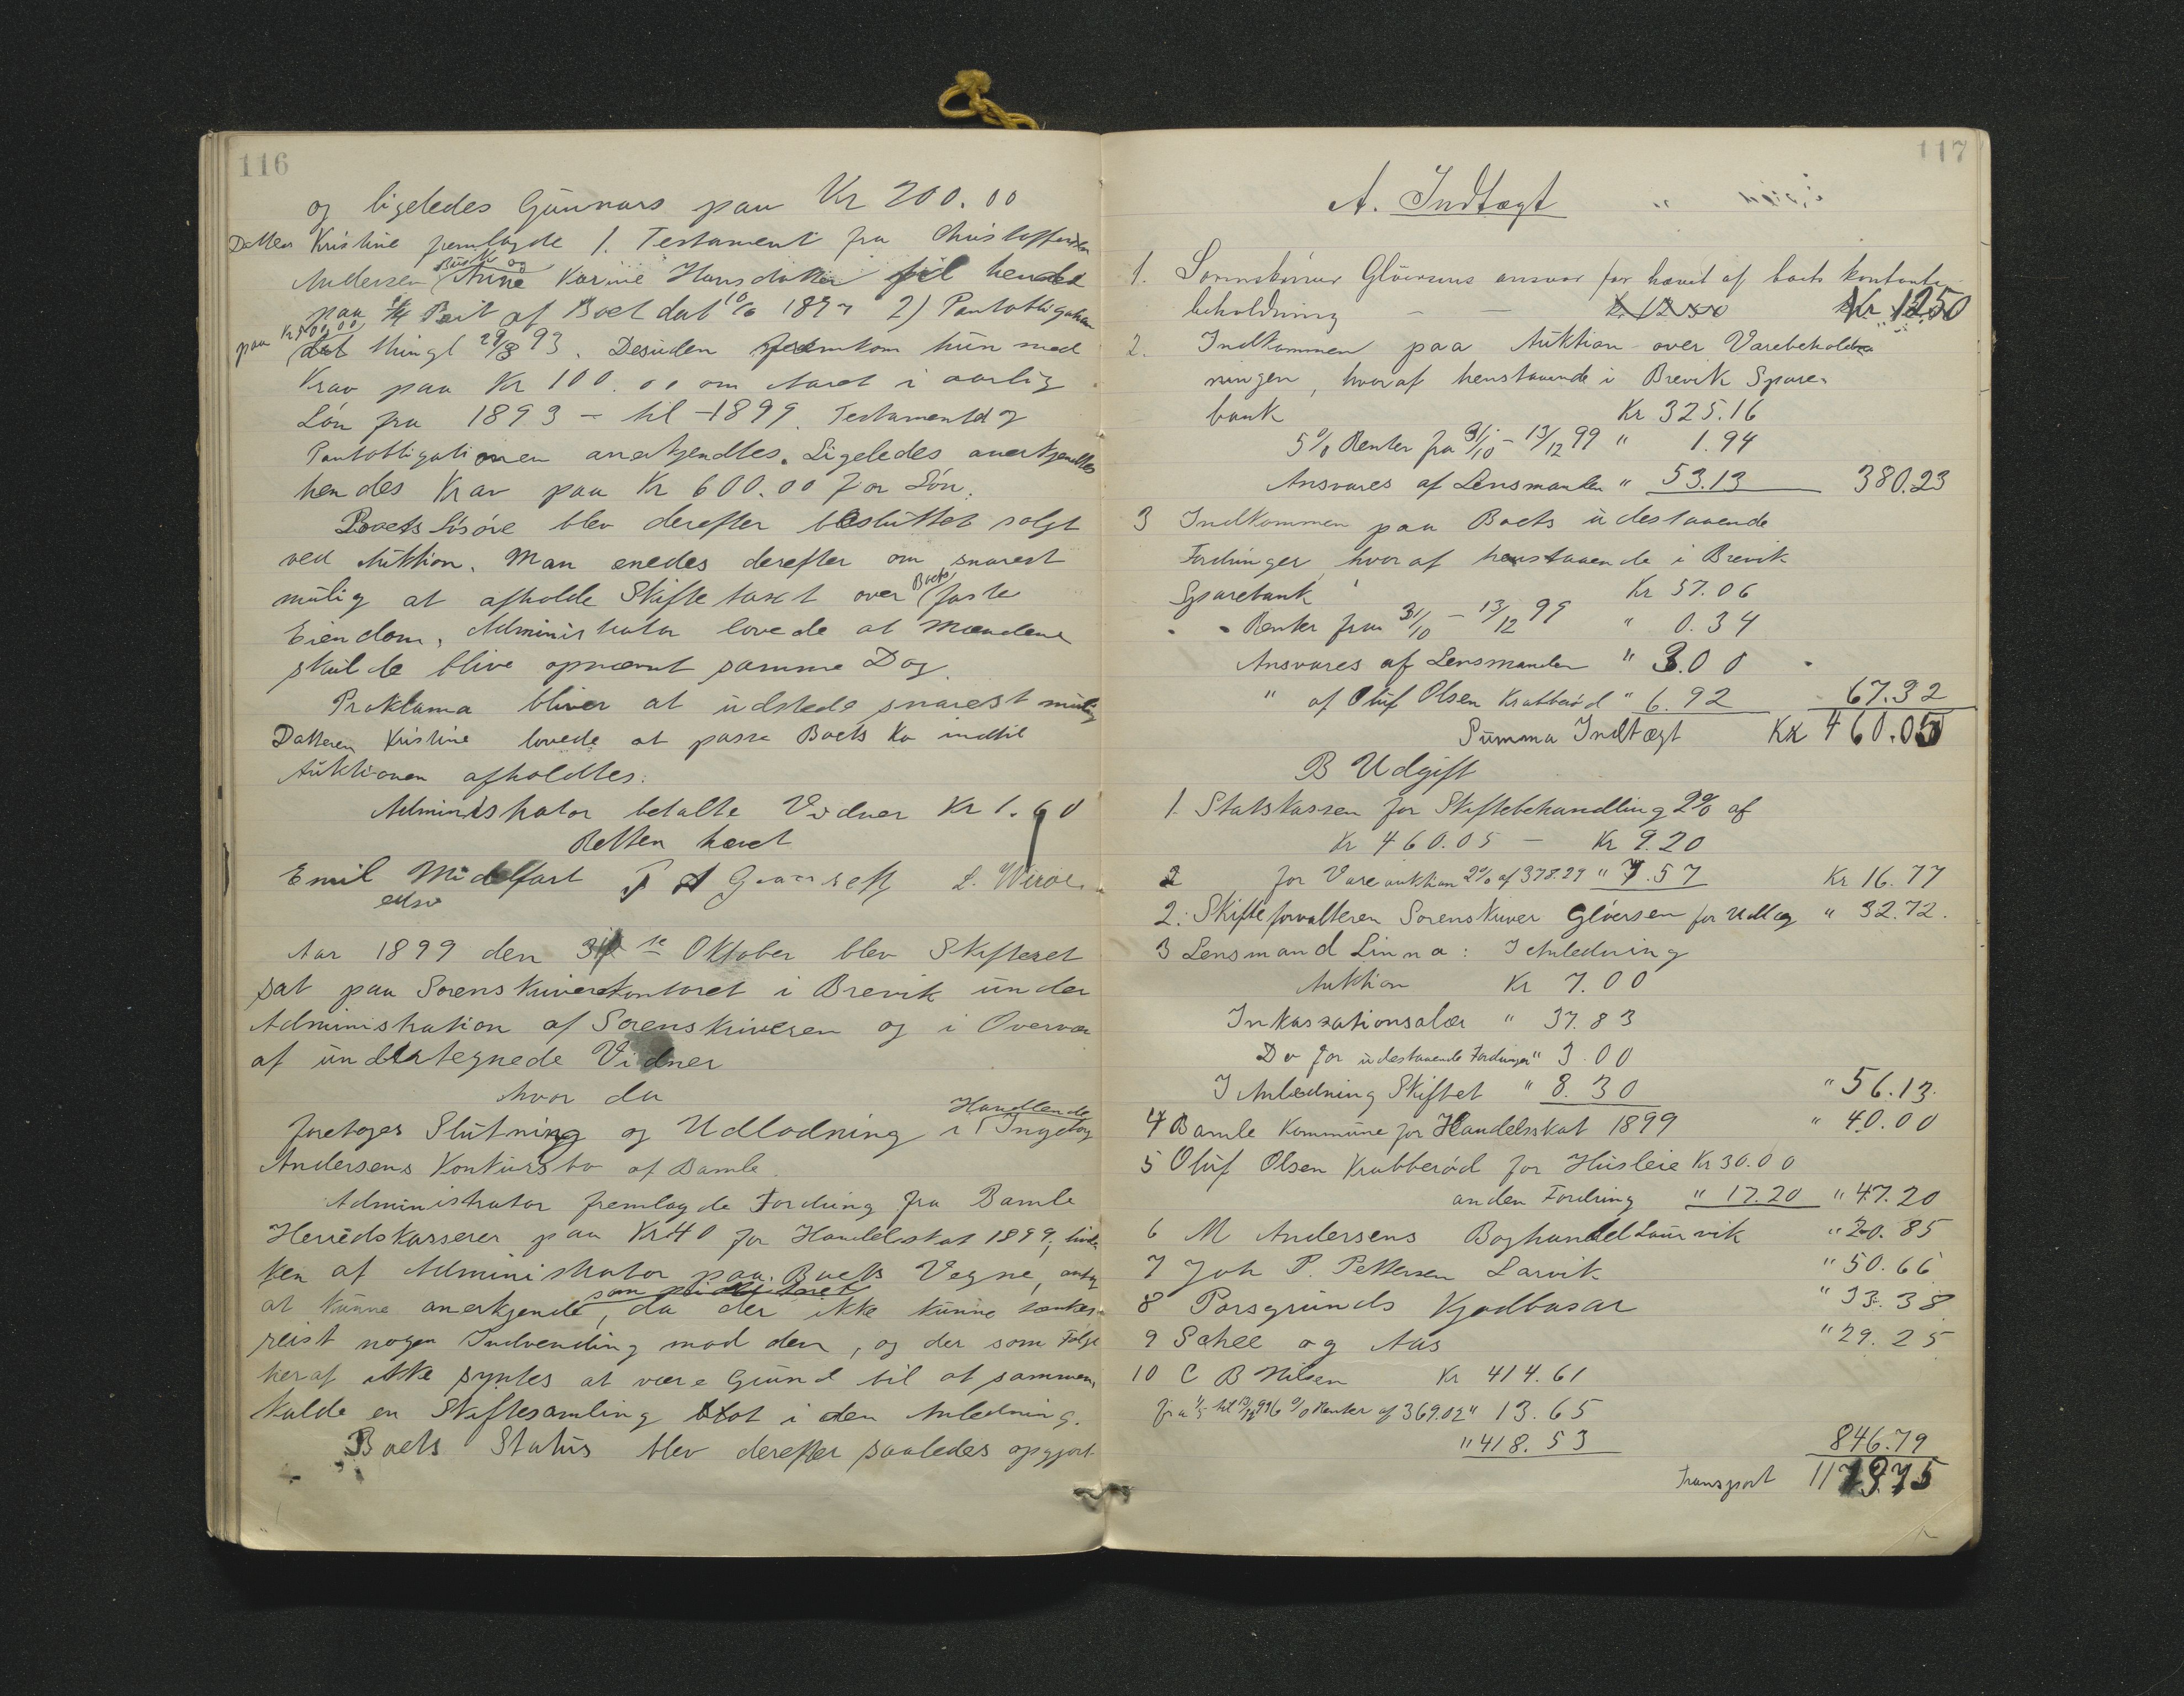 116
og ligeledes Gunnars paa Kr 200.00
Datteren Kristine fremlagde 1. Testament fra Christoffer
Andersen Anne Karine Hansdatter til hende
paa 1/4 Part af Boet dat 2) Pantobligation
paa Kr 500,00
dat thingl 29/8 93. Desuden fremkom hun med
Krav paa Kr 100.00 om Aaret i aarlig
Løn fra 1893 - til 1899. Testamentet og
Pantobligationen anerkjendtes. Ligeledes anerkjendtes
hendes Krav paa Kr 600.00 for Løn.
Boets løsøre blev derefter besluttet solgt
ved Auktion. Man enedes derefter om snarest
mulig at afholde Skiftetaxt over Boets faste
Eiendom, Administrator lovede at Mændene
skulde blive opnævnt samme Dag.
Proklama bliver at udstede snarest mulig
Datteren Kristine lovede at passe Boets Ko indtil
Auktionen afholdtes.
Administrator betalte Vidner Kr 1.60
Retten hævet
Emil Midelfart
Aar 1899 den 31te Oktober blev Skifteret
sat paa Sorenskriverkontoret i Brevik under
Administration af Sorenskriveren og i Overvær
af undertegnede Vidner
hvor da
foretoges Slutning og Udlodning i Handlende
Andersens Konkursbo af Bamle.
Administrator fremlagde Fordring fra Bamle
Herredskasserer paa Kr 40 for Handelsskat 1899,
ken af Administrator paa Boets Vegne,
at kunne anerkjende, da der ikke kunne tænkes
reist nogen Indvending mod den, og der som Følge
heraf ikke syntes at være Grund til at sammen
kalde en Skiftesamling blot i den Anledning.
Boets Status blev derefter saaledes opgjort
117
A. Indtægt
1. Sorenskriver Gløersens ansvar for hævet af boets kontante
beholdning - - Kr 12.50
2. Indkommen paa Auktion over Varebehold
ningen, hvoraf henstaaende i Brevik Spare-
bank Kr 325.16
5% Renter fra 31/10 - 13/12 99 " 1.94
Ansvares af Lensmanden " 53.13 380.23
3 Indkommen paa Boets udestaaende
Fordringer hvoraf henstaaende i Brevik
Sparebank Kr 57.06
" " Renter fra 31/10 - 13/12 99 " 0.34
Ansvares af Lensmanden " 3.00
" af Oluf Olsen Krabberød " 6.92 67.32
Summa Indtægt Kr 460.05
B Udgift
1. Statskassen for Skiftebehandling 2% af
Kr 460.05 - Kr 9.20
2 for Vareauktion 2% af 378.29 " 7.57 Kr 16.77
2: Skifteforvalteren Sorenskriver Gløersen for Udlæg " 32.72.
3 Lensmand Linna: I Anledning
Auktion Kr 7.00
Inkassationsalær " 37.83
Do for udestaaende Fordringer " 3.00
I Anledning Skiftet " 8.30 " 56.13.
4 Bamle Kommune for Handelsskat 1899 " 40.00
5 Oluf Olsen Krabberød for Husleie Kr 30.00
anden Fordring " 17.20 " 47.20
6 M Andersens Boghandel Laurvik " 20.85
7 Joh P. Pettersen Larvik " 50.66
8 Porsgrunds Kjødbasar " 33.38
9 Schee og Aas " 29.25
10 C B Nilsen Kr 414.61
6 % Renter af 369.02 " 13.65
" 418.53 846.79
Transport 1173.75